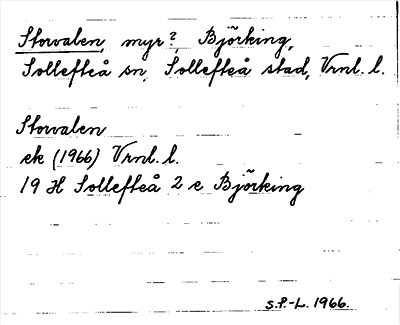 Storvalen, myr?, Björking,
Sollefteå sn, Sollefteå stad, Vrnl. l.
Storvalen
ek (1966) Vrnl. l.
19 H Sollefteå 2 e Björking
S.P.-L. 1966.